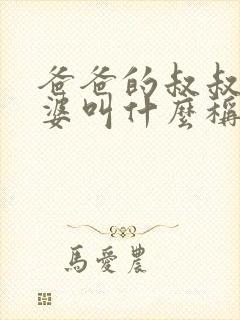 爸爸的叔叔
婆叫什麼稱
馬愛農